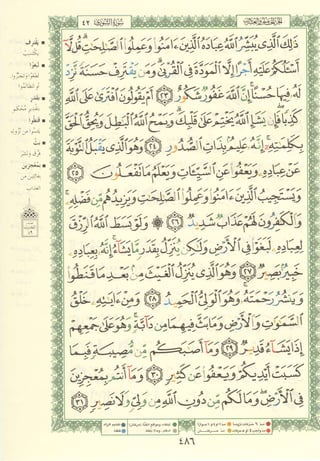 سورة الشورى
٤٢
ذَٰلِكَ ٱلَّذِى يُبَشِّرُ ٱللَّهُ عِبَادَهُ ٱلَّذِينَ ءَامَنُوا۟ وَعَمِلُوا۟ ٱلصَّـٰلِحَـٰتِ ۗ قُل لَّآ
أَسْـَٔلُكُمْ عَلَيْهِ أَجْرًا إِلَّا ٱلْمَوَدَّةَ فِى ٱلْقُرْبَىٰ ۗ وَمَن يَقْتَرِفْ حَسَنَةً نَّزِدْ
لَهُۥ فِيهَا حُسْنًا ۚ إِنَّ ٱللَّهَ غَفُورٌ شَكُورٌ ﴿٢٣﴾ أَمْ يَقُولُونَ ٱفْتَرَىٰ عَلَى ٱللَّهِ
كَذِبًا ۖ فَإِن يَشَإِ ٱللَّهُ يَخْتِمْ عَلَىٰ قَلْبِكَ ۗ وَيَمْحُ ٱللَّهُ ٱلْبَـٰطِلَ وَيُحِقُّ ٱلْحَقَّ
بِكَلِمَـٰتِهِۦٓ ۚ إِنَّهُۥ عَلِيمٌۢ بِذَاتِ ٱلصُّدُورِ ﴿٢٤﴾ وَهُوَ ٱلَّذِى يَقْبَلُ ٱلتَّوْبَةَ
عَنْ عِبَادِهِۦ وَيَعْفُوا۟ عَنِ ٱلسَّيِّـَٔاتِ وَيَعْلَمُ مَا تَفْعَلُونَ ﴿٢٥﴾
وَيَسْتَجِيبُ ٱلَّذِينَ ءَامَنُوا۟ وَعَمِلُوا۟ ٱلصَّـٰلِحَـٰتِ وَيَزِيدُهُم مِّن فَضْلِهِۦ ۚ
وَٱلْكَـٰفِرُونَ لَهُمْ عَذَابٌ شَدِيدٌ ﴿٢٦﴾ ۞ وَلَوْ بَسَطَ ٱللَّهُ ٱلرِّزْقَ
لِعِبَادِهِۦ لَبَغَوْا۟ فِى ٱلْأَرْضِ وَلَـٰكِن يُنَزِّلُ بِقَدَرٍ مَّا يَشَآءُ ۚ إِنَّهُۥ بِعِبَادِهِۦ
خَبِيرٌۢ بَصِيرٌ ﴿٢٧﴾ وَهُوَ ٱلَّذِى يُنَزِّلُ ٱلْغَيْثَ مِنۢ بَعْدِ مَا قَنَطُوا۟
وَيَنشُرُ رَحْمَتَهُۥ ۚ وَهُوَ ٱلْوَلِىُّ ٱلْحَمِيدُ ﴿٢٨﴾ وَمِنْ ءَايَـٰتِهِۦ خَلْقُ
ٱلسَّمَـٰوَٰتِ وَٱلْأَرْضِ وَمَا بَثَّ فِيهِمَا مِن دَآبَّةٍ ۚ وَهُوَ عَلَىٰ جَمْعِهِمْ
إِذَا يَشَآءُ قَدِيرٌ ﴿٢٩﴾ وَمَآ أَصَـٰبَكُم مِّن مُّصِيبَةٍ فَبِمَا
كَسَبَتْ أَيْدِيكُمْ وَيَعْفُوا۟ عَن كَثِيرٍ ﴿٣٠﴾ وَمَآ أَنتُم بِمُعْجِزِينَ
فِى ٱلْأَرْضِ ۖ وَمَا لَكُم مِّن دُونِ ٱللَّهِ مِن وَلِىٍّ وَلَا نَصِيرٍ ﴿٣١﴾
٤٨٦